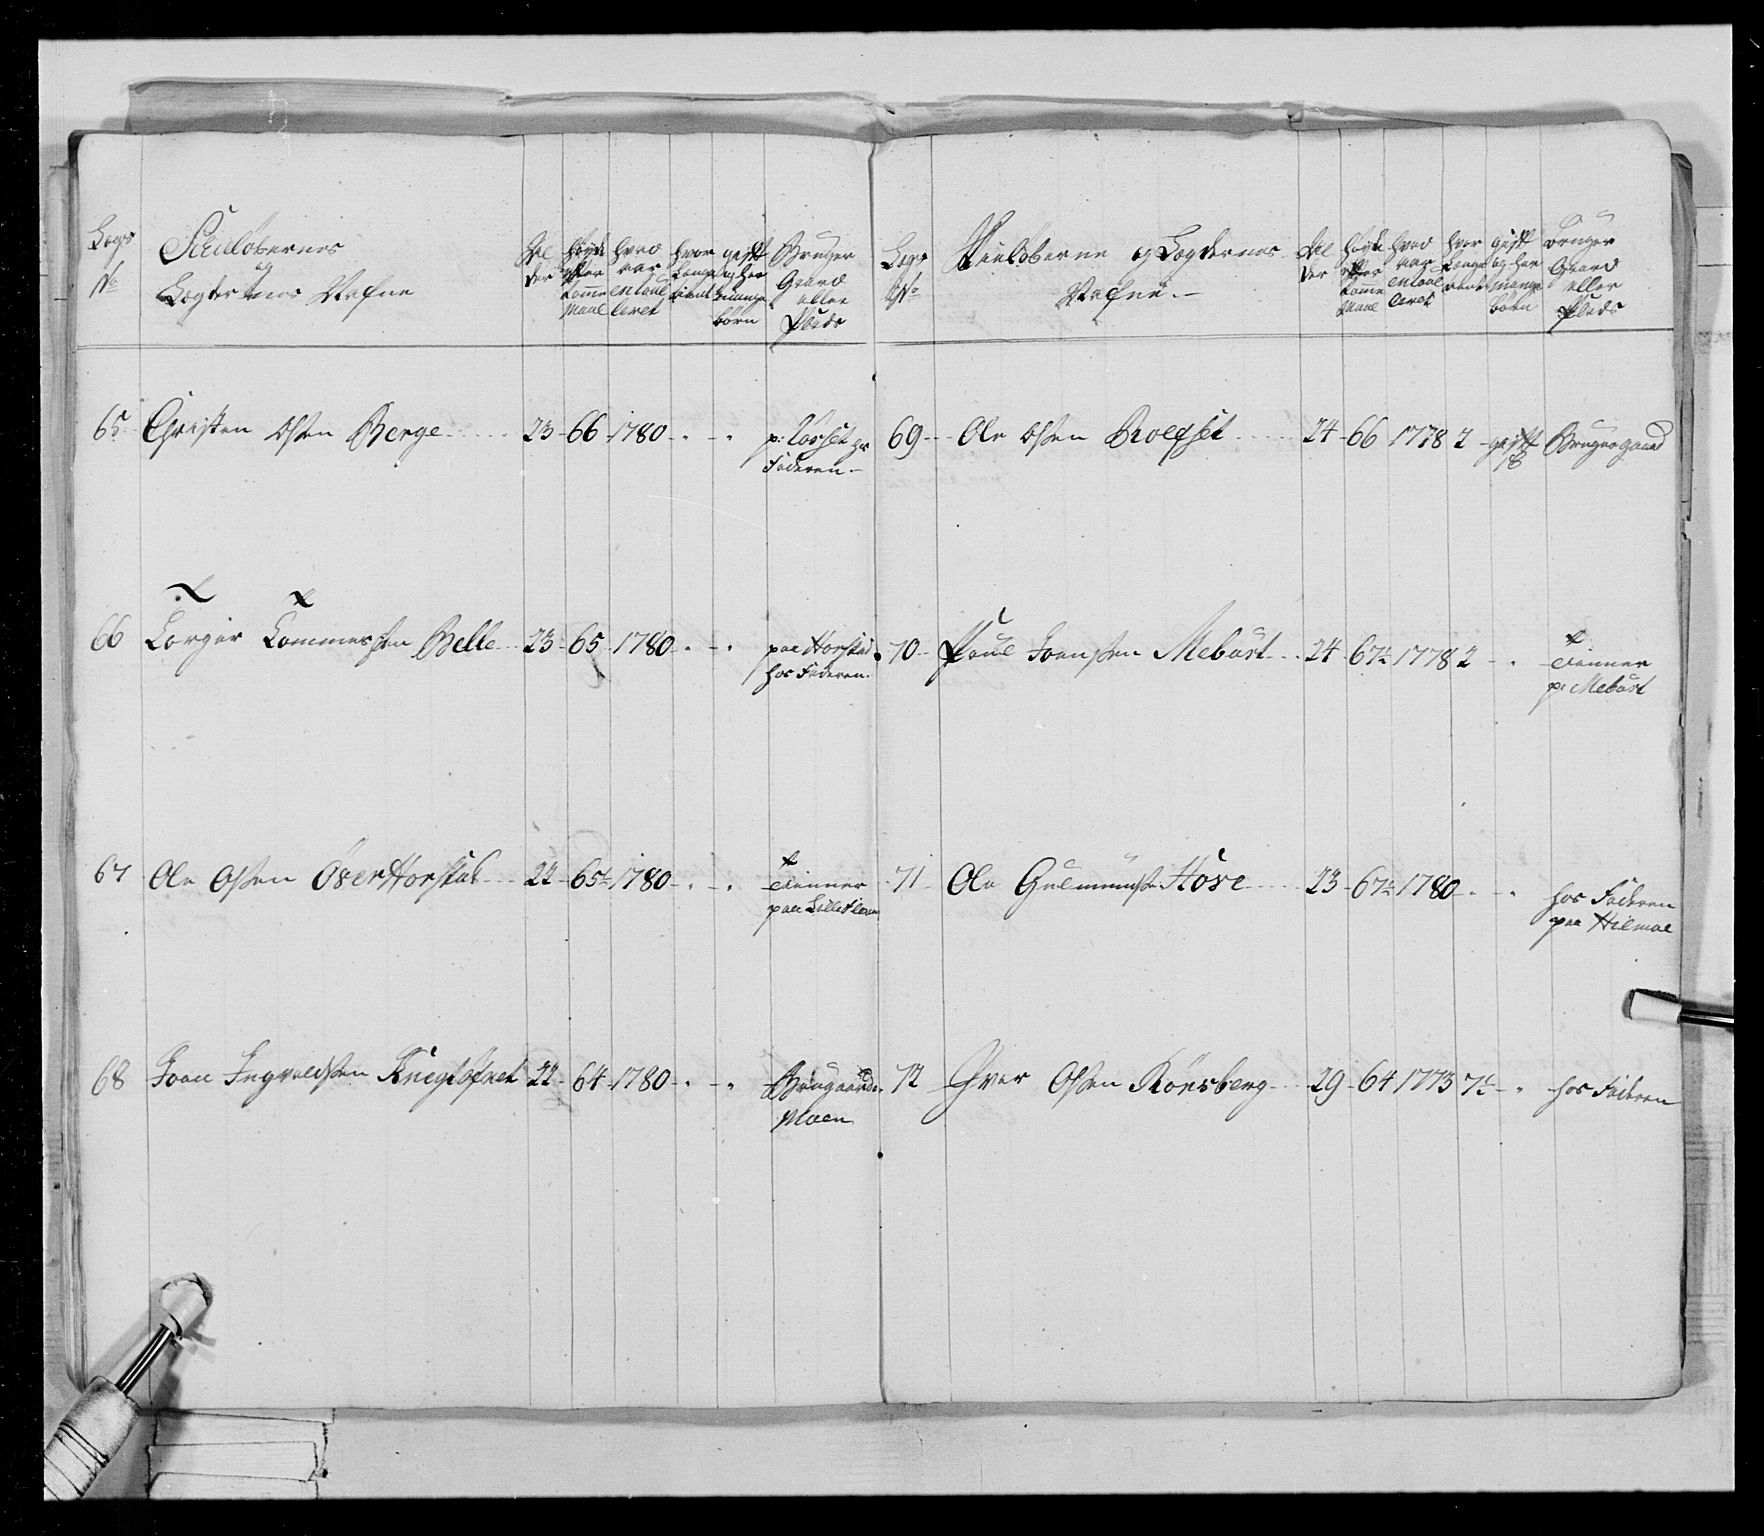 Lægs
No
Skiløbernes
og
Lægternes Nafne
Al
der
høyde
efter
Tomme
Maal
hvad
aar
enroul
leret
hvor
Længe
tient
gift
og hvor
mange
børn
Bruger
Gaard
eller
Plads
65 Christen Olsen Berge 23 66 1780 " "
Faderen
66 Torger Tommessen Belle 23 65 1780 " " paa Horstad
hos Faderen
67 Ole Olsen Over Horstad 22 65½ 1780 " " Tienner
paa Lille
68 Joen Ingvaldsen 22 64 1780 " "
Moen
Lægs
No
Skiløberne og Lægdernes
Nafne
Al
der
høyde
efter
Tomme
Maal
hvad
aar
enroul
leret
hvor
Længe
tient
gift
og hvor
mange
børn
Bruger
Gaard
eller
Plads
69 Ole Olsen Roegset 24 66 1778 2 gift Bruger gaard
70 Poul Joensen Mebust 24 67½ 1778 2 " Tienner
p: Mebust
71 Ole Gulmundsen Hove 23 67½ 1780 " " hos Faderen
paa Hielmae
72 Iver Olsen Rønsberg 29 64 1773 7½ " hos Faderen